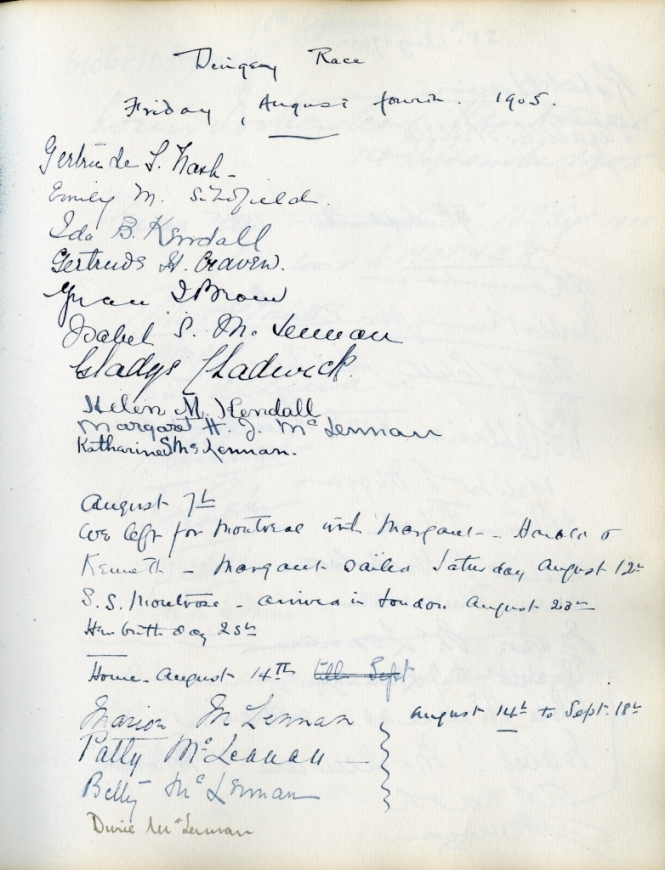 Dingey Race
Friday, August fourth. 1905.
Gertrude S. Nash -
Emily M. Schofield.
Ida B. Kendall
Gertrude H. Craven.
Brown
Isabel S. McLennan
Gladys Chadwick.
Helen M. Kendall
Margaret H. J. McLennan
Katharine S McLennan.
August 7th
We left for Montreal with Margaret - Harold &
Kenneth - Margaret sailed Saturday August 12th
S.S. Montrose - arrived in London August 23rd
Her birthday 25th
Home - August 14th till Sept
Marion McLennan
August 14th to Sept. 18th
Patty McLennan
Betty McLennan
Durie McLennan